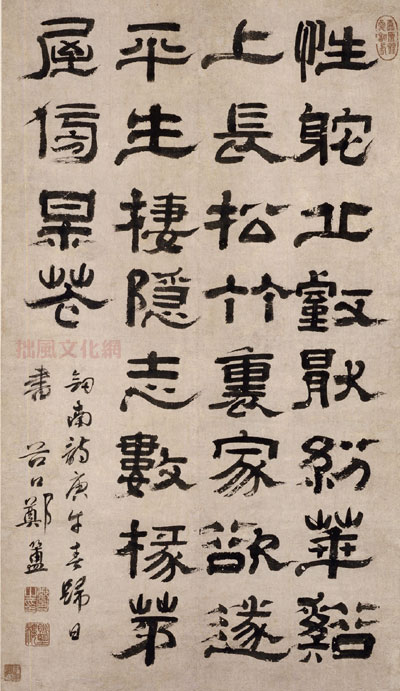 性躭丘壑猒紛華谿
上長松竹裏家欲遂
平生棲隱志數椽茅
屋傍花
劍南詩庚午春歸日
書 谷口鄭簠
拙風文化網